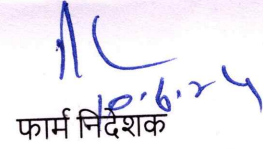 10.6.24
फार्म निदेशक